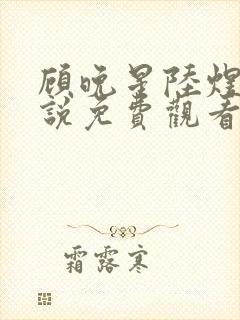 顾晚星陸煌
說免費觀看
霜露寒